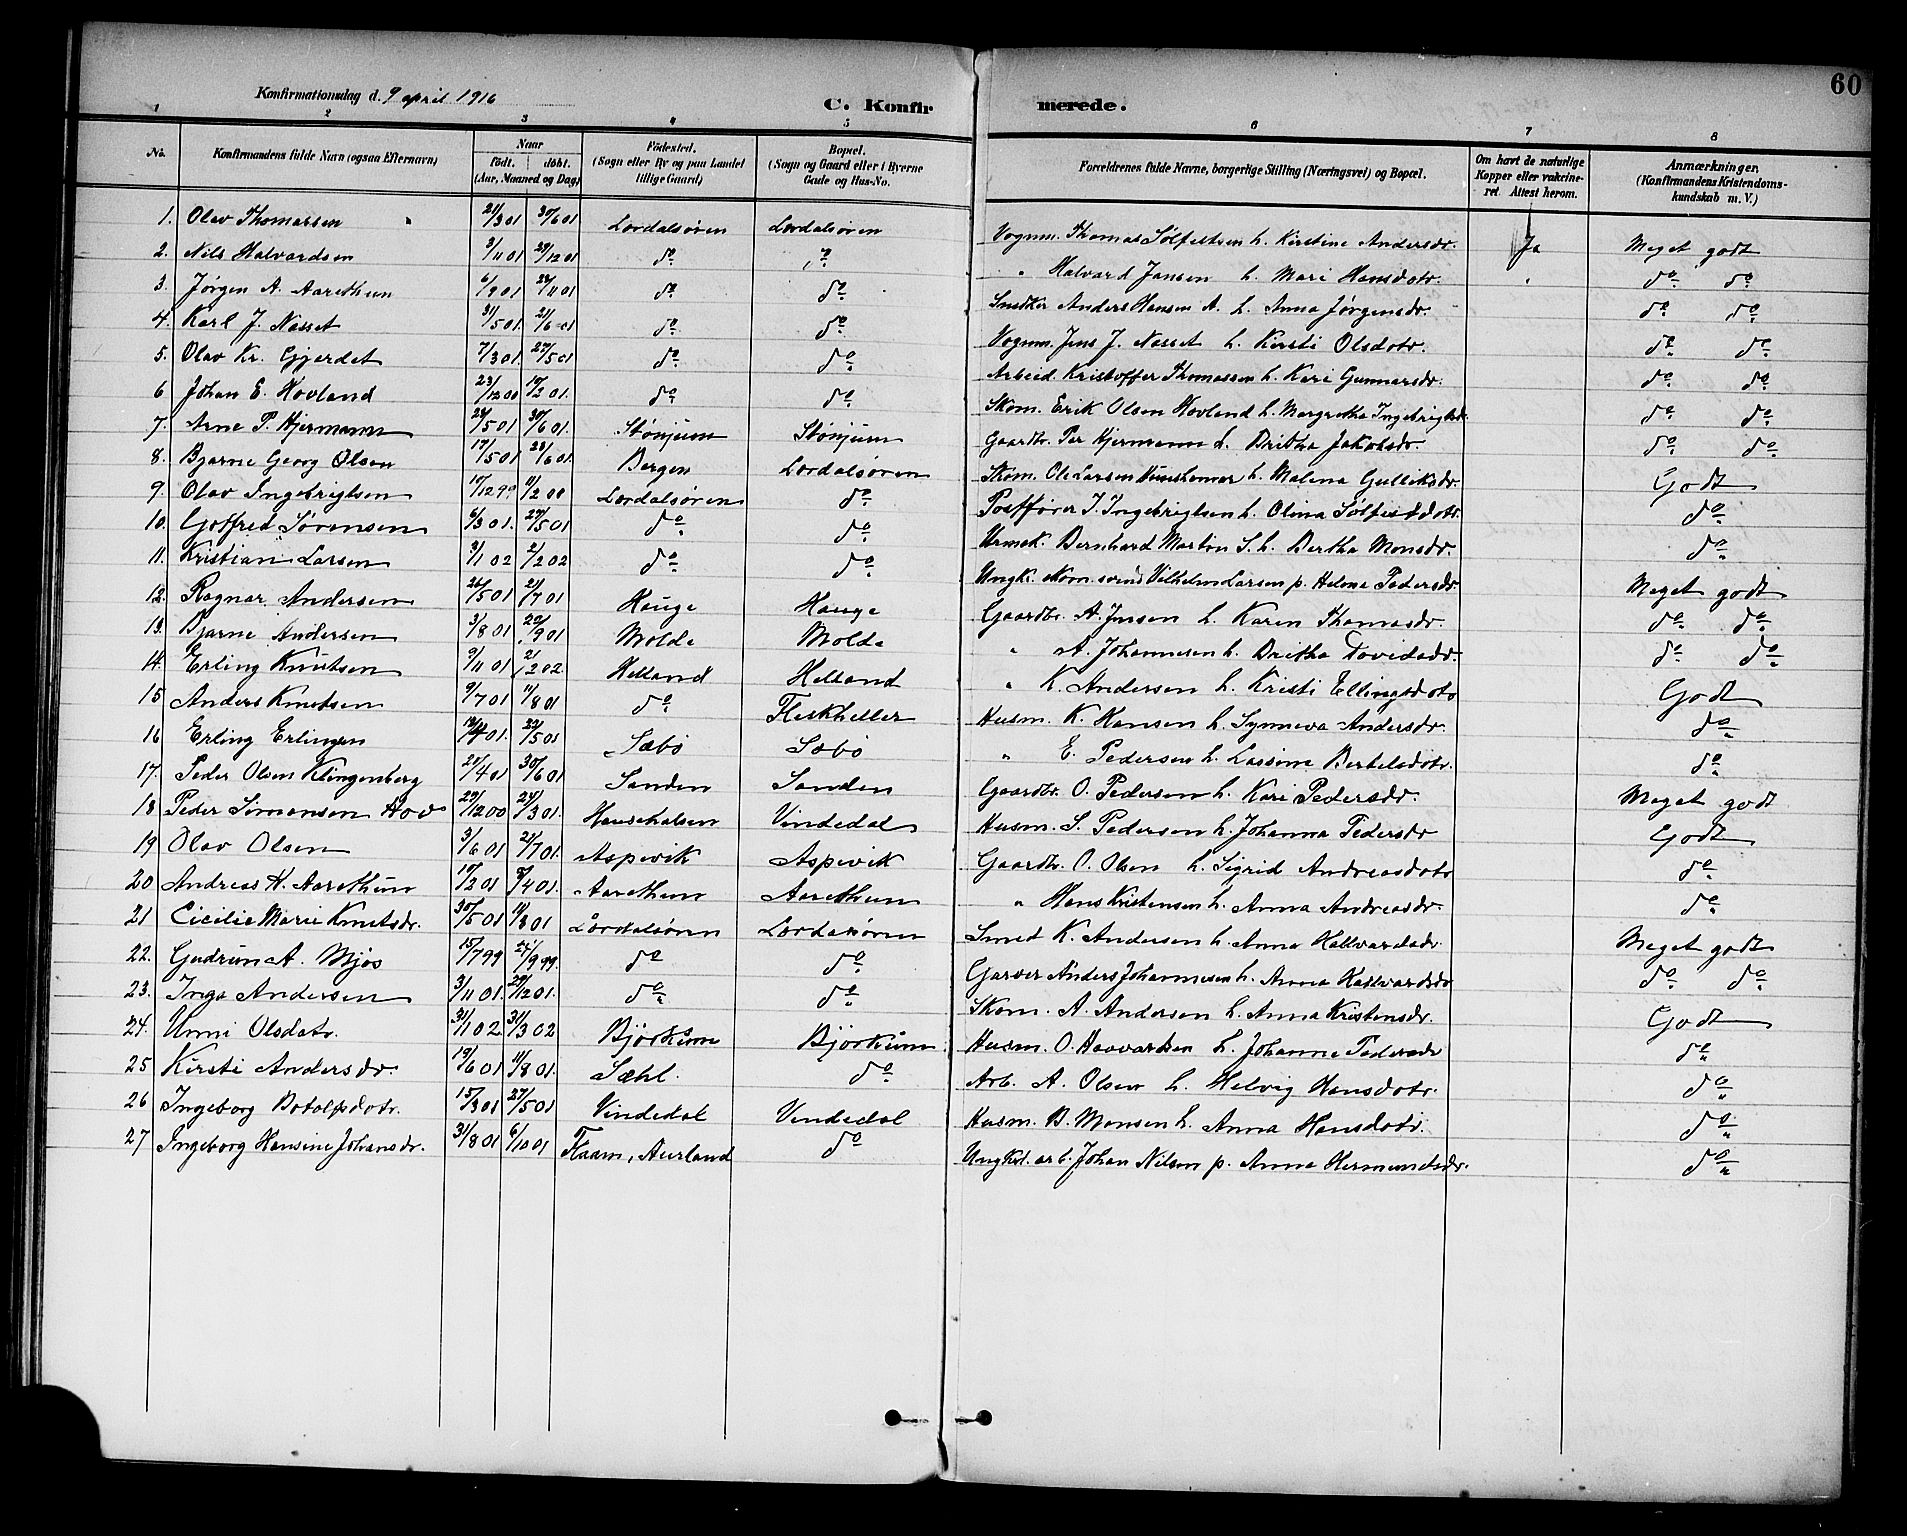 60
Konfirmationsdag d. 9 april 1916
C. Konfirmerede.
1 2 3 4 5 6 7 8
No. Konfirmandens fulde Navn (ogsaa Efternavn) Naar født. døbt. (Aar, Maaned og Dag) Födested. (Sogn eller By og paa Landet tillige Gaard) Bopæl. (Sogn og Gaard eller i Byerne Gade og Hus-No. Forældrenes fulde Navne, borgerlige Stilling (Næringsvei) og Bopæl. Om havt de naturlige Kopper eller vakcineret. Attest herom. Anmærkninger. (Konfirmandens Kristendomskundskab m. V.)
1. Olav Thomassen 21/3 01 30/6 01 Lærdalsøren Lærdalsøren Vognm. Thomas Sølfestsen h. Kirstine Andersdr. Ja Meget godt
2. Nils Halvardsen 3/11 01 29/12 01 do do " Halvard Jansen h. Mari Hansdotr. " do do
3. Jørgen A. Aarethun 6/9 01 24/11 01 do do Snedker Anders Hansen A. h. Anna Jørgensdr. do do
4. Karl J. Nesset 31/5 01 21/6 01 do do Vognm. Jens J. Nesset h. Kirsti Olsdotr. do do
5. Olav Kr. Gjerdet 7/3 01 27/5 01 do do Arbeid. Kristoffer Thomassen h. Kari Gunnarsdr. do do
6 Johan E. Hovland 23/12 00 17/2 01 do do Skom. Erik Olsen Hovland h. Margretha Ingebrigtsd. do do
7. Arne P. Hjermann 24/5 01 30/6 01 Stønjum Stønjum Gaardbr. Per Hjermann h. Britha Jakobsdr. do do
8. Bjarne Georg Olsen 17/5 01 23/6 01 Bergen Lærdalsøren Skom. Ole Larsen h. Malena Gulliksdr. Godt
9. Olav Ingebrigtsen 17/12 99 11/2 00 Lærdalsøren do Postfører I. Ingebrigtsen h. Olina Sølfestdotr. do
10. Gotfred Sørensen 6/3 01 27/5 01 do do Urmak. Bernhard Martin S. h. Bertha Monsdr. do
11. Kristian Larsen 3/1 02 2/2 02 do do Ungk. Skom. svend Vilhelm Larsen p. Helma Pedersdr. Meget godt
12. Ragnar Andersen 26/5 01 21/7 01 Hauge Hauge Gaardbr. A. Jensen h. Karen Thomasdr. do do
13. Bjarne Andersen 3/8 01 29/9 01 Molde Molde " A. Johannesen h. Britha Davidsdr. do do
14. Erling Knutsen 9/11 01 21/2 02 Helland Helland " K. Andersen h. Kristi Ellingsdotr Godt
15 Anders Knutsen 9/7 01 11/8 01 do Fleskheller Husm. K. Hansen h. Synneva Andersdr. do
16 Erling Erlingsen 01. 27/5 01 Sæbø Sæbø " E. Pedersen h. Lassine Bertelsdotr. do
17. Peder Olsen Klingenberg 21/4 01 30/6 01 Sanden Sanden Gaardbr. O. Pedersen h. Kari Pedersdr. Meget godt
18 Peder Simonsen Hov 29/12 00 24/3 01. Vindedal Husm. S. Pedersen h. Johanna Pedersdr Godt
19 Olav Olsen 3/6 01 21/7 01. Aspevik Aspevik Gaardbr. O. Olsen h. Sigrid Andreasdotr do
20 Andreas H. Aarethun 17/2 01 8/4 01. Aarethun Aarethun " Hans Kristensen h. Anna Andreasdr. do
21 Cicilie Marie Knutsdr. 30/5 01 11/8 01 Lærdalsøren Lærdalsøren Smed K. Andersen h. Anna Hallvardsdr. Meget godt
22. Gudrun A. Mjøs 15/7 99 24/9 99. do do Garver Anders Johannesen h. Anna Hallvardsdr do do
23. Inga Andersen 3/11 01. 29/12 01. do do Skom. A. Andersen h. Anna Kristensdr. Godt
24. Unni Olsdatr. 31/1 02 31/3 02 Bjørkum Bjørkum Husm. O. Haavardsen h. Johanne Pedersdr do
25 Kirsti Andersdr 19/6 01 11/8 01. Sæhl. do Arb. A. Olsen h. Helvig Hansdotr. do
26 Ingeborg Botolfsdotr. 15/3 01 27/5 01 Vindedal Vindedal Husm. B. Monsen h. Anna Hansdotr. do
27 Ingeborg Hansine Johansdr. 31/8 01 6/10 01 Flaam, Aurland do Ungkd. arb. Johan Nilsen p. Anna Hermundsdr. do